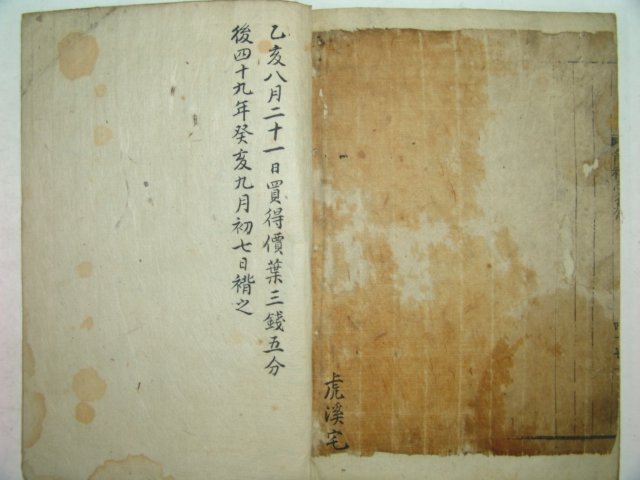 虎溪宅
乙亥八月二十一日買得價葉三錢五分
後四十九年癸亥九月初七日褙之